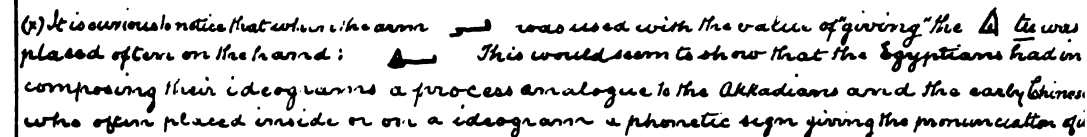 (x) It is curious to notice that when the arm was used with the value of "giving" the tu was
placed often on the hand: This would seem to show that the Egyptians had in
composing their ideograms a process analogue to the Akkadians and the early Chinese
who often placed inside or on a ideogram a phonetic sign giving the pronunciation of